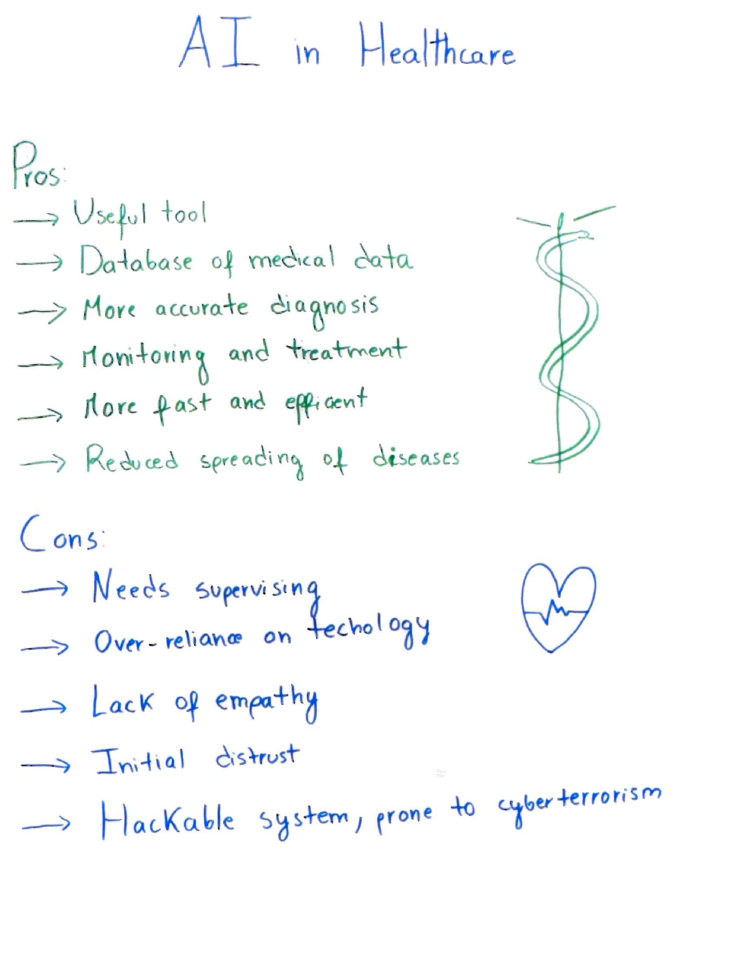 AI in Healthcare
Pros:
→ Useful tool
→ Database of medical data
→ More accurate diagnosis
→ Monitoring and treatment
→ More fast and efficent
→ Reduced spreading of diseases
Cons:
→ Needs supervising
→ Over-reliance on techology
→ Lack of empathy
→ Initial distrust
→ Hackable system, prone to cyberterrorism